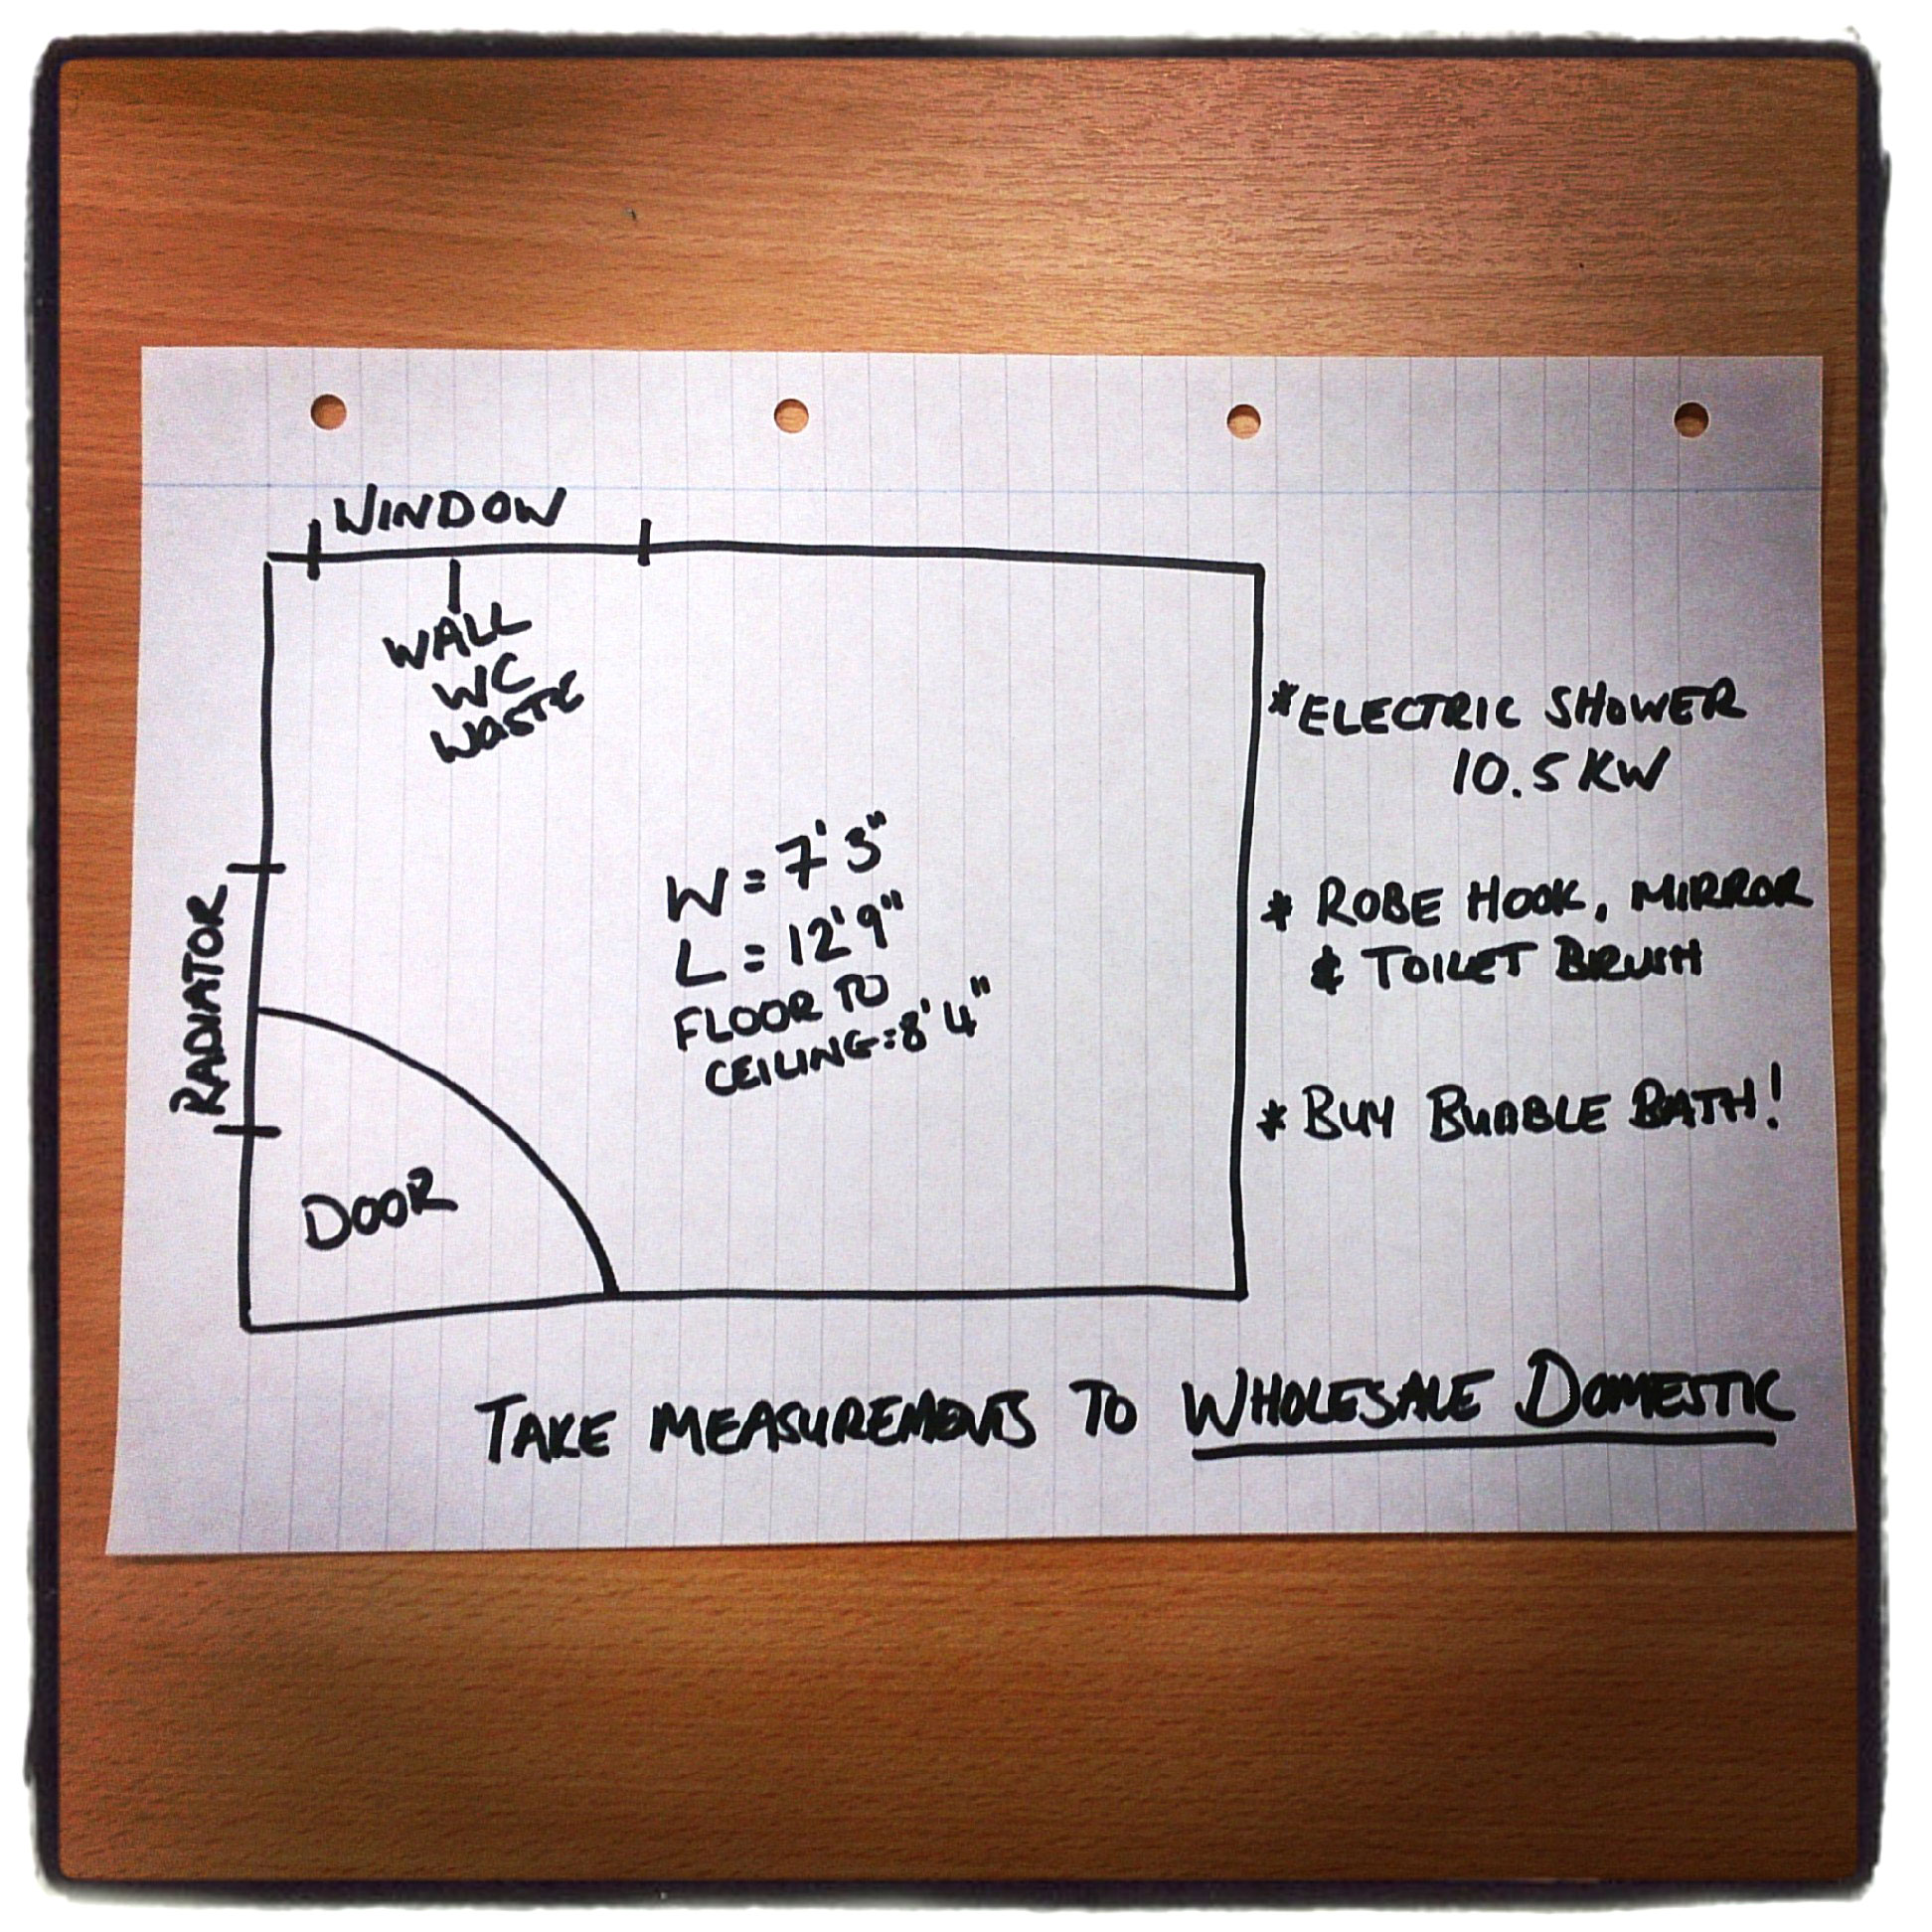 WINDOW
WALL
WC
WASTE
RADIATOR
DOOR
W = 7'3"
L = 12'9"
FLOOR TO
CEILING = 8'4"
* ELECTRIC SHOWER
10.5 KW
* ROBE HOOK, MIRROR
& TOILET BRUSH
* BUY BUBBLE BATH!
TAKE MEASUREMENTS TO WHOLESALE DOMESTIC